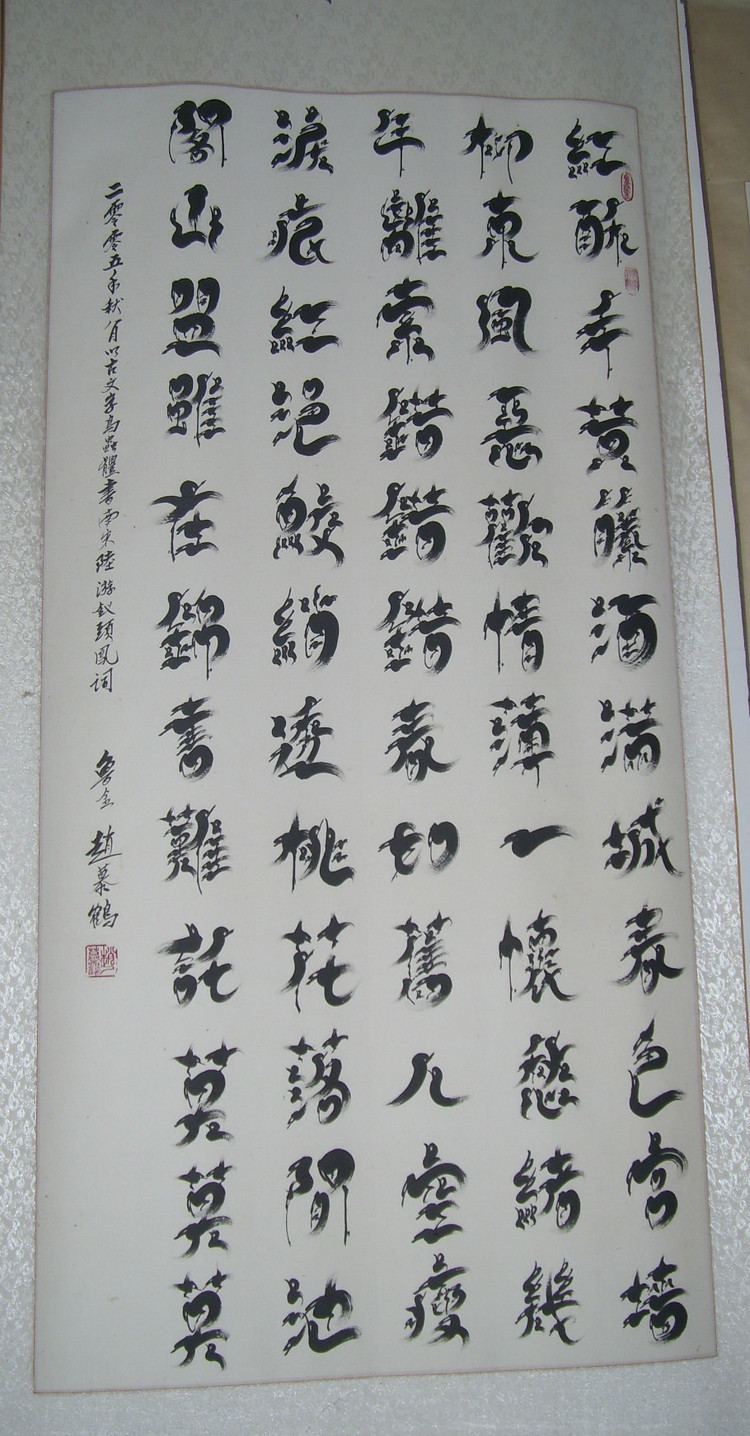 紅酥手黄籐酒滿城春色宮墻
柳東風惡歡情薄一懷愁緒幾
年離索錯錯錯春如舊人空瘦
淚痕紅浥鮫綃透桃花落閒池
閣山盟雖在錦書難託莫莫莫
二零零五年秋八月以古文字鳥蟲體書南宋陸游釵頭鳳詞 魯金 趙慕鶴